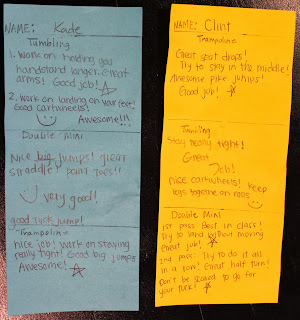 NAME: Kade
Tumbling
1. Work on holding you
handstand longer. Great
arms! Good job!
2. Work on landing on your feet!
Good cartwheels!
Awesome!!!
Double Mini
Nice big jumps! great
straddle! Point toes!!
very good!
good tuck jump!
Trampoline
Nice job! Work on staying
really tight! Good big jumps
Awesome!
NAME: Clint
Trampoline
Great seat drops!
Try to stay in the middle!
Awesome pike jumps!
Good job!
Tumbling
Stay really tight!
Great
Job!
Nice cartwheels! Keep
legs together on rolls
Double Mini
1st pass: Best in class!
Try to land without moving
Great job!
2nd pass: Try to do it all
in a row! Great half turn!
Don't be scared to go for
your tuck!